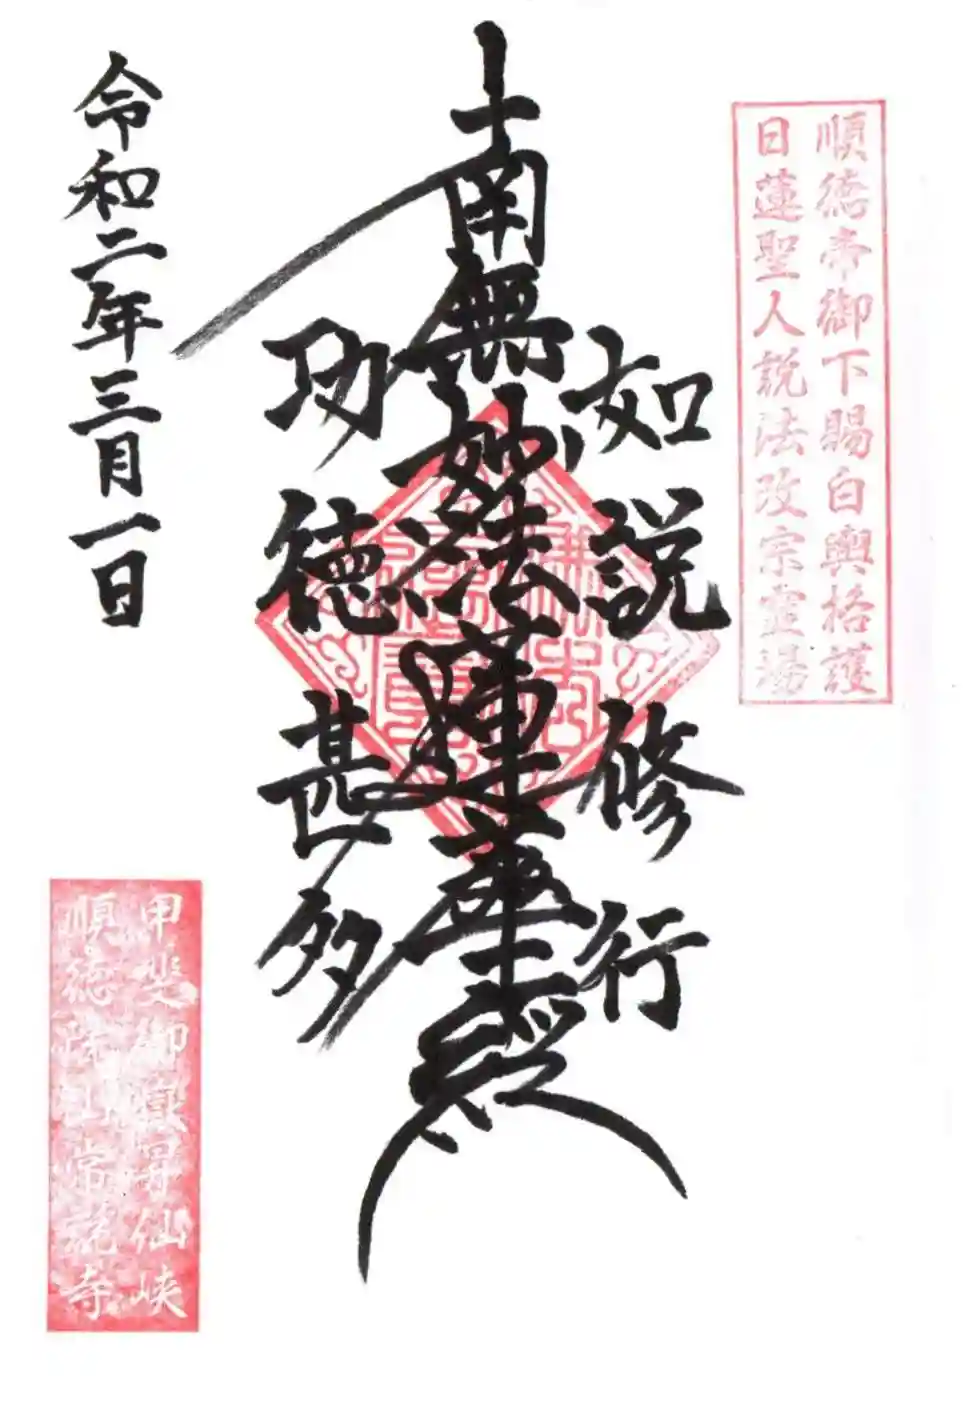 順徳帝御下賜白輿格護
日蓮聖人説法改宗霊場
如説修行
南無妙法蓮華経
功徳甚多
令和二年三月一日
甲斐御嶽昇仙峡
順徳山常説寺